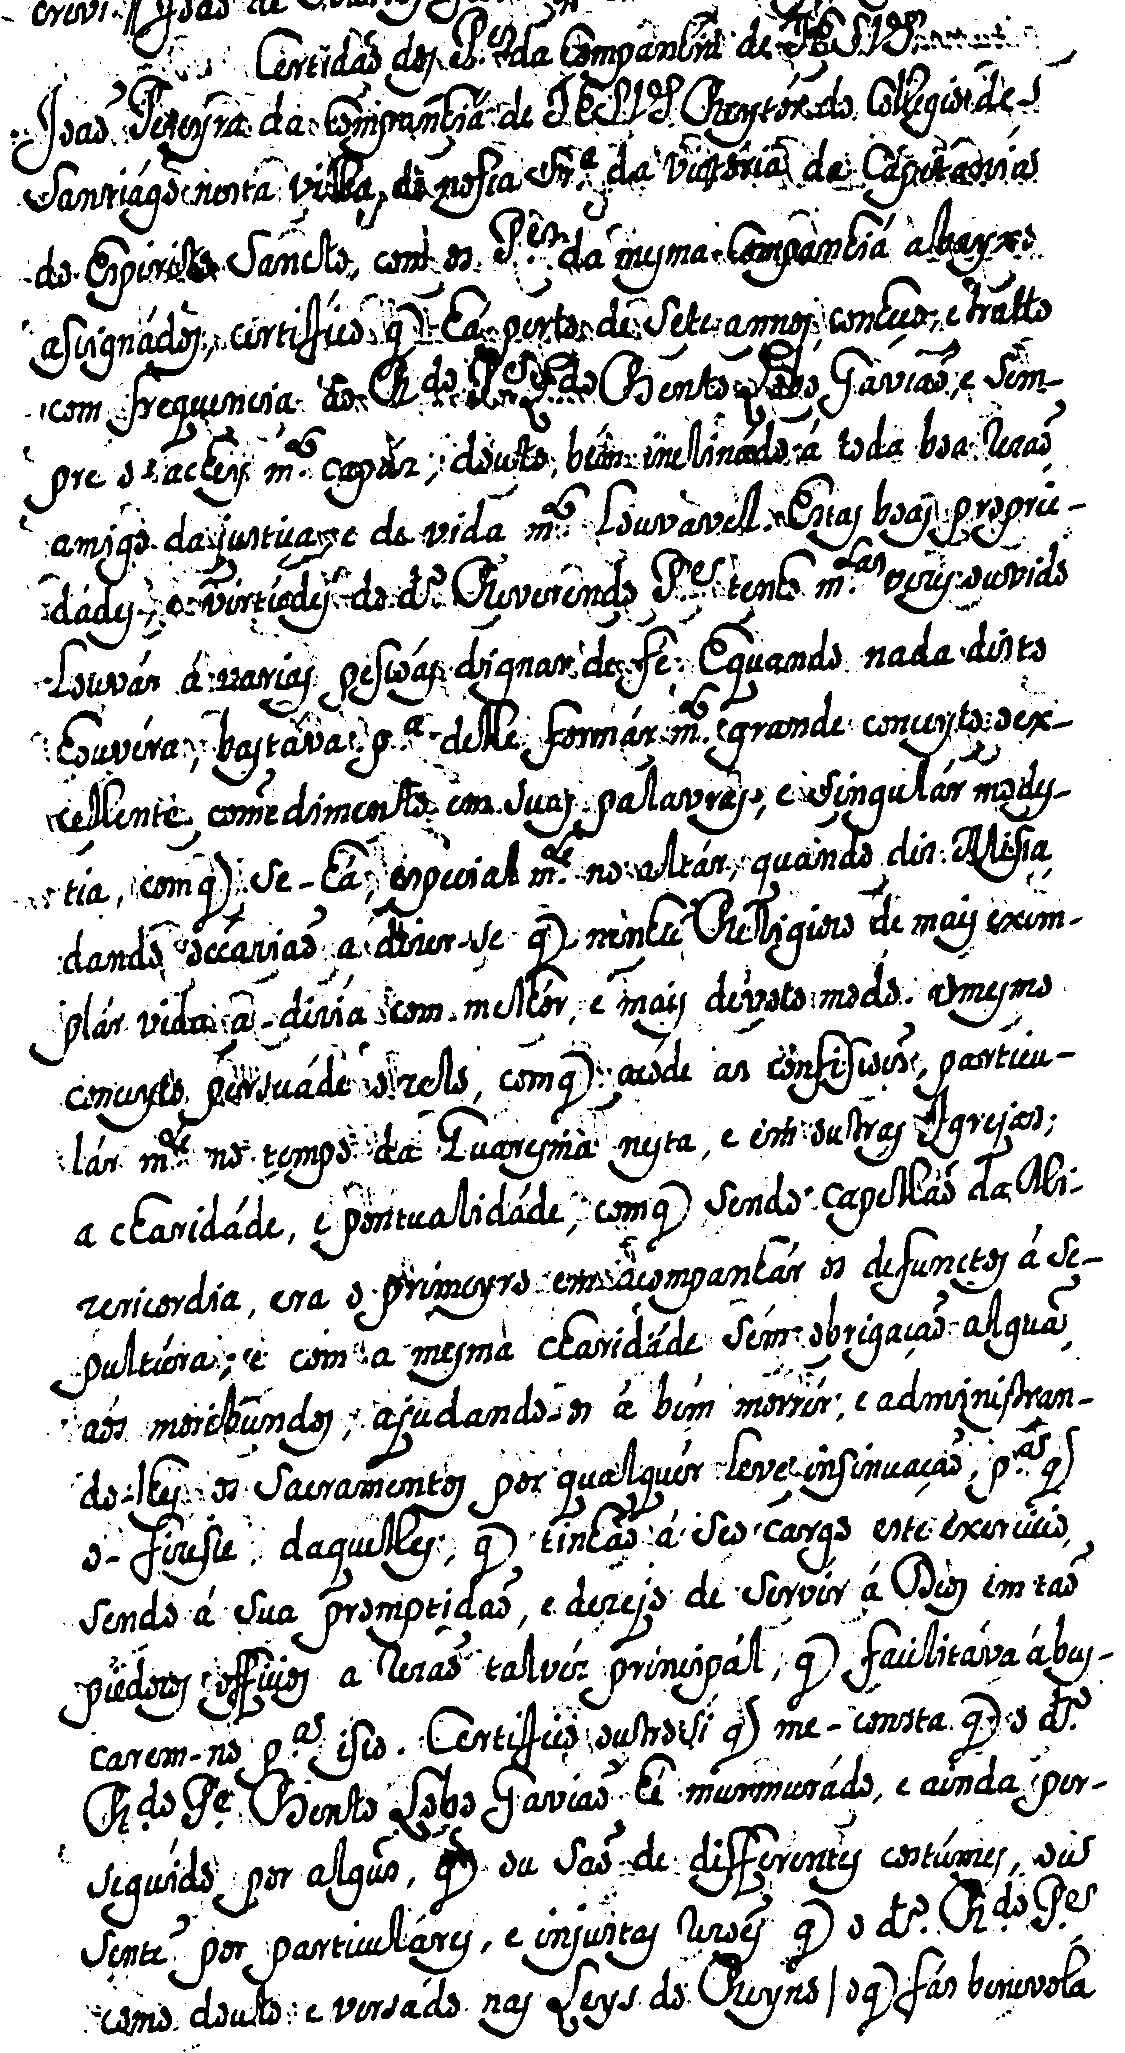 crevi. Joaõ de
Certidaõ dos P.es da Companhia de JESVS.
Joaõ Pereyra da Companhia de JESVS Reytór do Collegio de
Santiágo nesta villa de nossa Sr.a da Victoria da Capitania
do Espirito Sancto, com os P.es da mesma Companhiá abayxo
assignádos, certifico q̃ há perto de sete annos conheço, e tratto
com frequencia ao R.do P.e Bento Lobo Gaviaõ, e sem-
pre o achey m.to capáz, doutto, bém inclinádo á toda boa rezaõ
amigo da justiça, e de vida m.to louvavell. Estas boas proprie-
dádes, e virtúdes do d.o Reverendo P.e tenho m.tas vezes ouvido
Louvár á varias pessoás dignas de fé. E quando nada disto
houvéra, bastáva p.a delle formár m.to grande conceyto o ex-
cellente comedimento em suas palavras, e singulár modes-
tia, com q̃ se-há, especialm.te no altár, quando diz Missa,
dando occaziaõ a dizer-se q̃ nenhũ Relligiozo de mais exem-
plár vida a-dizia com melhór, e mais devoto modo. O mesmo
conceyto persuáde o zelo, com q̃ acóde as confissoẽs, particu-
lárm.te no tempo da Quaresma nesta, e em outras Igrejas;
a charidáde, e pontualidáde, com q̃ sendo Capellaõ da Mi-
zericordia, era o primeyro em acompanhár os defunctos á se-
pultúra; e com a mesma charidáde sem obrigaçaõ alguã
aós moribundos, ajudando-os á bem morrer, e administran-
do-lhes os Sacramentos por qualquér leve insinuaçaõ, p.as q̃
o-fizesse, daquelles, q̃ tinhaõ á seo cargo este éxercicio,
sendo á sua promptidaõ, e dezejo de servir á Deos em taõ
piedozos officios a rezaõ talvéz principál, q̃ facilitáva á bus-
carem-no p.as isso. Certifico outrosi q̃ me-consta q̃ o d.o
R.do P.e Bento Lobo Gaviaõ hé murmurádo, e ainda per-
seguido por algũs, q̃ ou saõ de differentes costúmes, ou s
sente por particuláres, e injustas rezoẽs q̃ o d.o R.do P.e
como doutto e versádo nas Leys do Reyno / o q̃ fás benevola